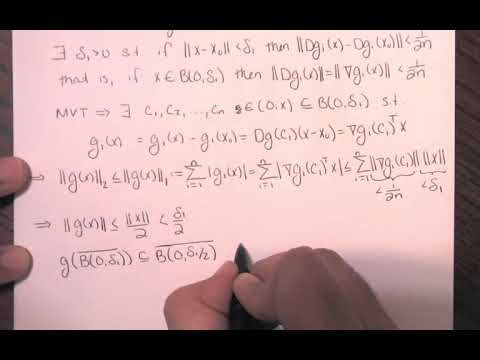 ∃ δ₁>0 s.t. if ||x-x₀||<δ₁ then ||Dgᵢ(x)-Dgᵢ(x₀)||<1/2n
that is, if x∈B(0,δ₁) then ||Dgᵢ(x)||=||∇gᵢ(x)||<1/2n
MVT ⇒ ∃ c₁,c₂,...,cₙ ∈(0,x)⊆B(0,δ₁) s.t.
gᵢ(x) = gᵢ(x)-gᵢ(x₀)=Dg(cᵢ)(x-x₀)=∇gᵢ(cᵢ)ᵀx
⇒ ||g(x)||₂≤||g(x)||₁:=∑ⁿᵢ₌₁|gᵢ(x)|=∑ⁿᵢ₌₁|∇gᵢ(cᵢ)ᵀx|≤∑ⁿᵢ₌₁||∇gᵢ(cᵢ)|| ||x||
<1/2n <δ₁
⇒ ||g(x)||≤||x||/2<δ₁/2
g(B̅(̅0̅,̅δ̅₁̅)̅)⊆B̅(̅0̅,̅δ̅₁̅/̅2̅)̅